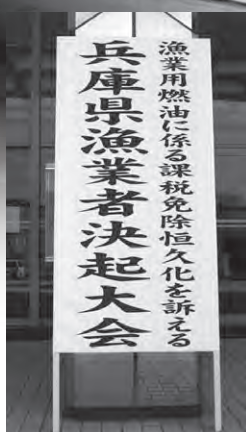 漁業用燃油に係る課税免除恒久化を訴える
兵庫県漁業者決起大会